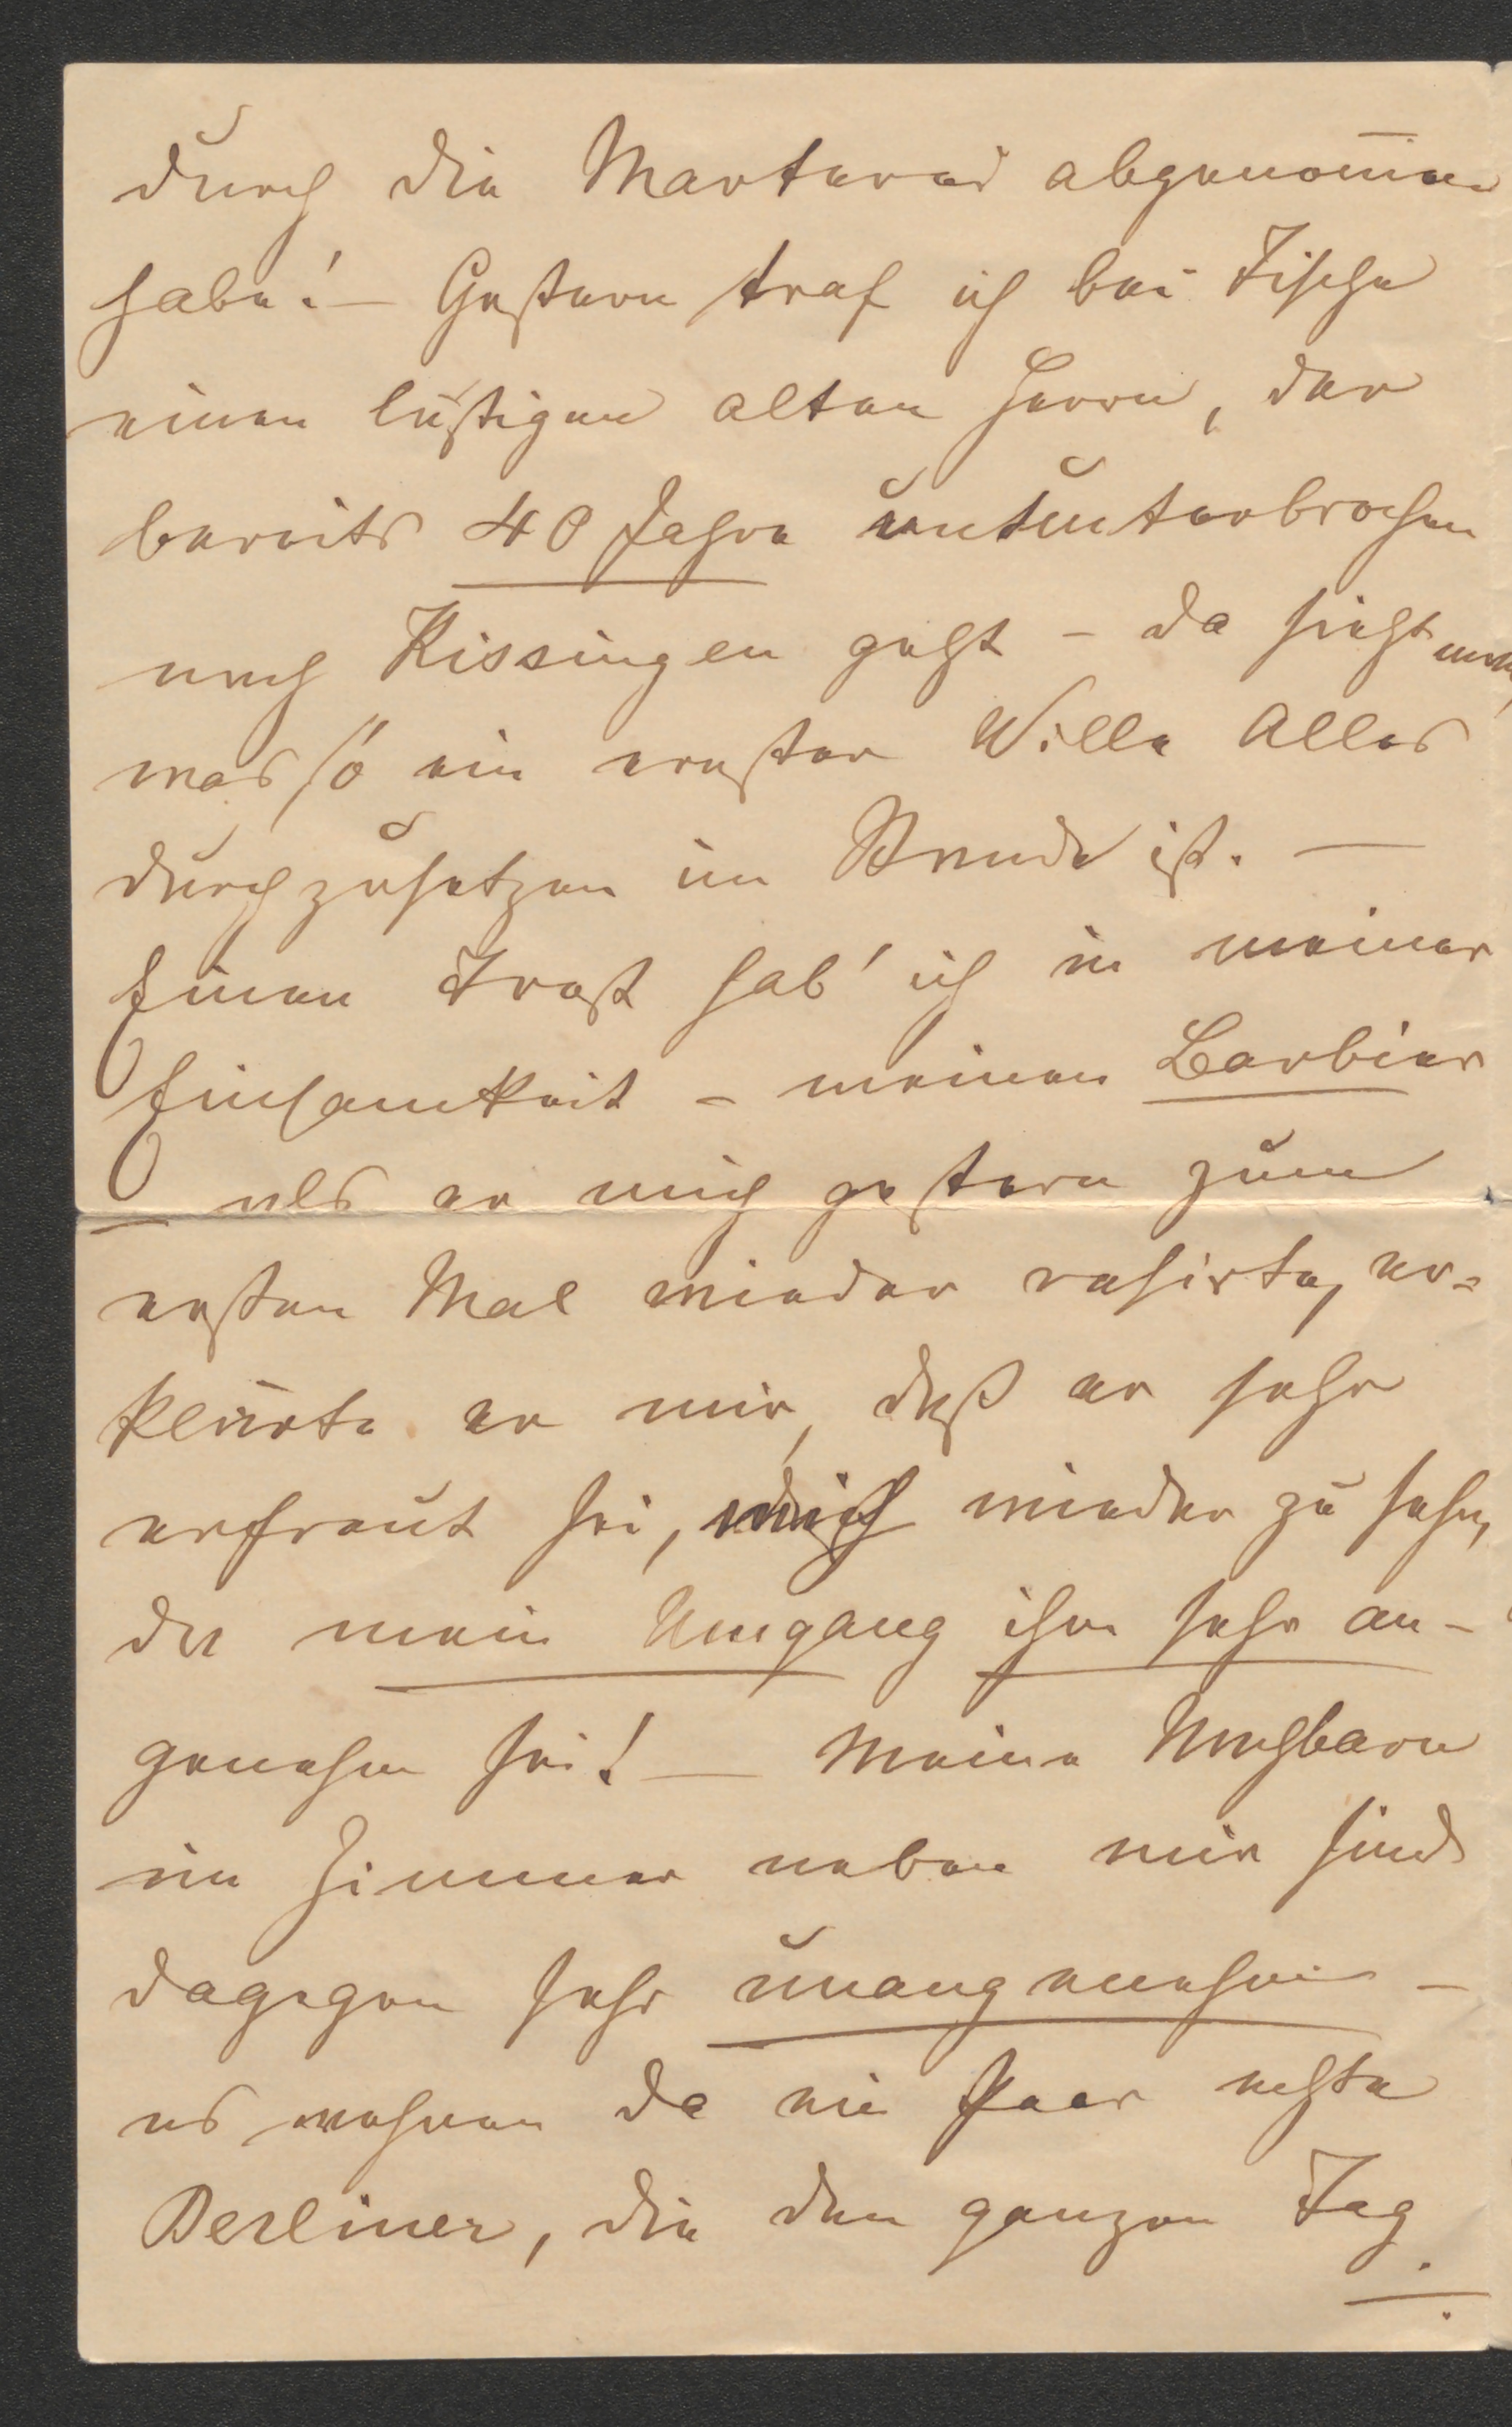 durch die Marterei abgenom̄en
habe! – Gestern traf ich bei Tische
einen lustigen alten Herrn, der
bereits 40 Jahre ununterbrochen
nach Kissingen geht – da sieht man,
was so ein ernster Wille Alles
durchzusetzen im Stande ist. –
Einen Trost hab' ich in meiner
Einsamkeit – meinen Barbier
– als er mich gestern zum
ersten Mal wieder rasirte, er-
klärte er mir, daß er sehr
erfreut sei, mich wieder zu sehn,
da mein Umgang ihm sehr an-
genehm sei! – Meine Nachbarn
im Zimmer neben mir sind
dagegen sehr unangenehm –
es wohnen da ein Paar echte
Berliner, die den ganzen Tag